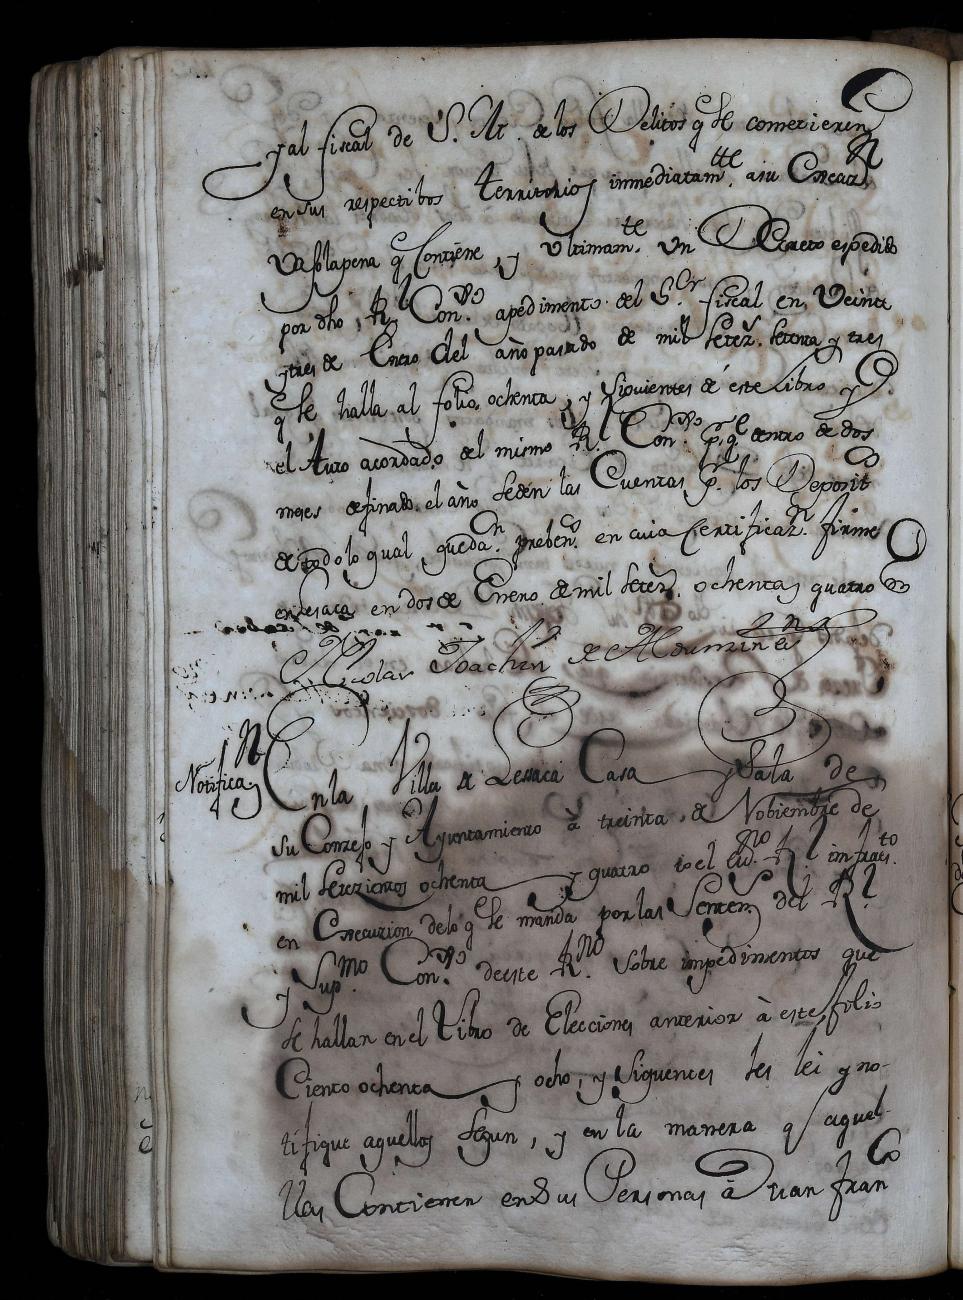 y al fiscal de S. M. de los Delitos q se comezieren
en sus respectibos territorios immediatam.te a su Execuz.n
vajo la pena q contiene, y ultimam.te un Decreto espedido
por dho, R.l Con.so apedimento del S.or fiscal en veinte
ytres de Enero del año pasado de mil setez.s setenta y tres
q se halla al folio, ochenta, y siguientes de este Libro y
el Auto acordado, del mismo R.l Con.so p.a q.e dentro de dos
meses definado, el año se den las Cuentas p.r los Deposit
de todo lo qual, queda.n preben.os en cuia Certificaz.n firme
en Lesaca en dos de Enero de mil setez.s ochenta y quatro
Nicolas Joachin de Alduncin
Notificaz.n
En la Villa de Lessaca Casa y Sala de
su Conzejo y Ayuntamiento à treinta, de Nobiembre de
mil setezientos ochenta y quatro io el Ess.no R.l infraes.to
en Execuzion delo q se manda por las Senten.s del R.l
y Sup.mo Con.so de este R.no sobre impedimentos que
se hallan en el Libro de Elecciones anterior à este, folio
Ciento ochenta y ocho, y siguentes les lei y no-
tifique aquellos segun, y en la manera q aquel-
llas Contienen en sus Personas à Juan Fran.co